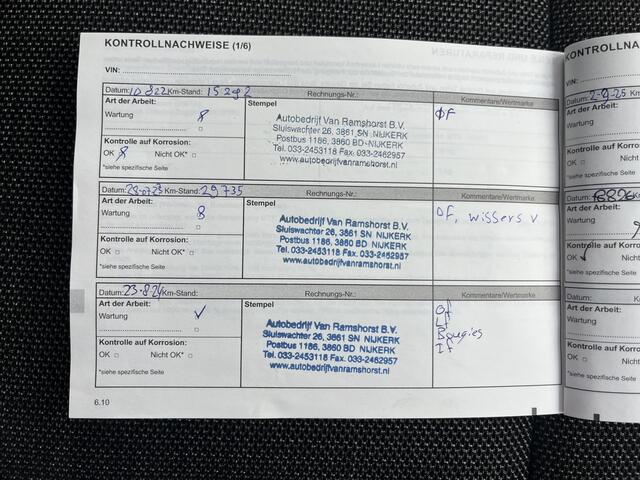 KONTROLLNACHWEISE (1/6)
VIN:
Datum: Km-Stand: 15292 Rechnungs-Nr.: Kommentare/Wertmarke
Art der Arbeit: Stempel
Wartung
Kontrolle auf Korrosion:
OK □ Nicht OK* □
*siehe spezifische Seite
Autobedrijf Van Ramshorst B.V.
Sluiswachter 26, 3861 SN NIJKERK
Postbus 1186, 3860 BD NIJKERK
Tel. 033-2453118 Fax. 033-2462957
www.autobedrijfvanramshorst.nl
OF
Datum: Km-Stand: 29735 Rechnungs-Nr.: Kommentare/Wertmarke
Art der Arbeit: Stempel
Wartung
Kontrolle auf Korrosion:
OK □ Nicht OK* □
*siehe spezifische Seite
Autobedrijf Van Ramshorst B.V.
Sluiswachter 26, 3861 SN NIJKERK
Postbus 1186, 3860 BD NIJKERK
Tel. 033-2453118 Fax. 033-2462957
www.autobedrijfvanramshorst.nl
OF, wissers v
Datum: 23-8-24 Km-Stand: Rechnungs-Nr.: Kommentare/Wertmarke
Art der Arbeit: Stempel
Wartung ✓
Kontrolle auf Korrosion:
OK □ Nicht OK* □
*siehe spezifische Seite
Autobedrijf Van Ramshorst B.V.
Sluiswachter 26, 3861 SN NIJKERK
Postbus 1186, 3860 BD NIJKERK
Tel. 033-2453118 Fax. 033-2462957
www.autobedrijfvanramshorst.nl
Of
Lf
Bougies
If
6.10
KONTROLLNA
VIN:
Datum:
Art der Arbeit:
Wartung
Kontrolle auf Ko
OK □ Nicht
*siehe spezifische
Art der Arbeit:
Wartung
Kontrolle auf
OK Nich
*siehe spezifisch
Datum:
Art der Arbeit
Wartung
Kontrolle auf
OK □ Nic
*siehe spezifisc